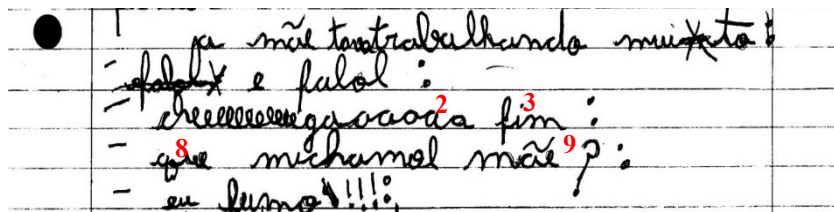 a mãe tava trabalhando muito :
e falol :
- cheeeeeeeegaaaaada 2 fim 3 :
- que 8 michamol mãe 9 ? :
- eu lumo !!! :